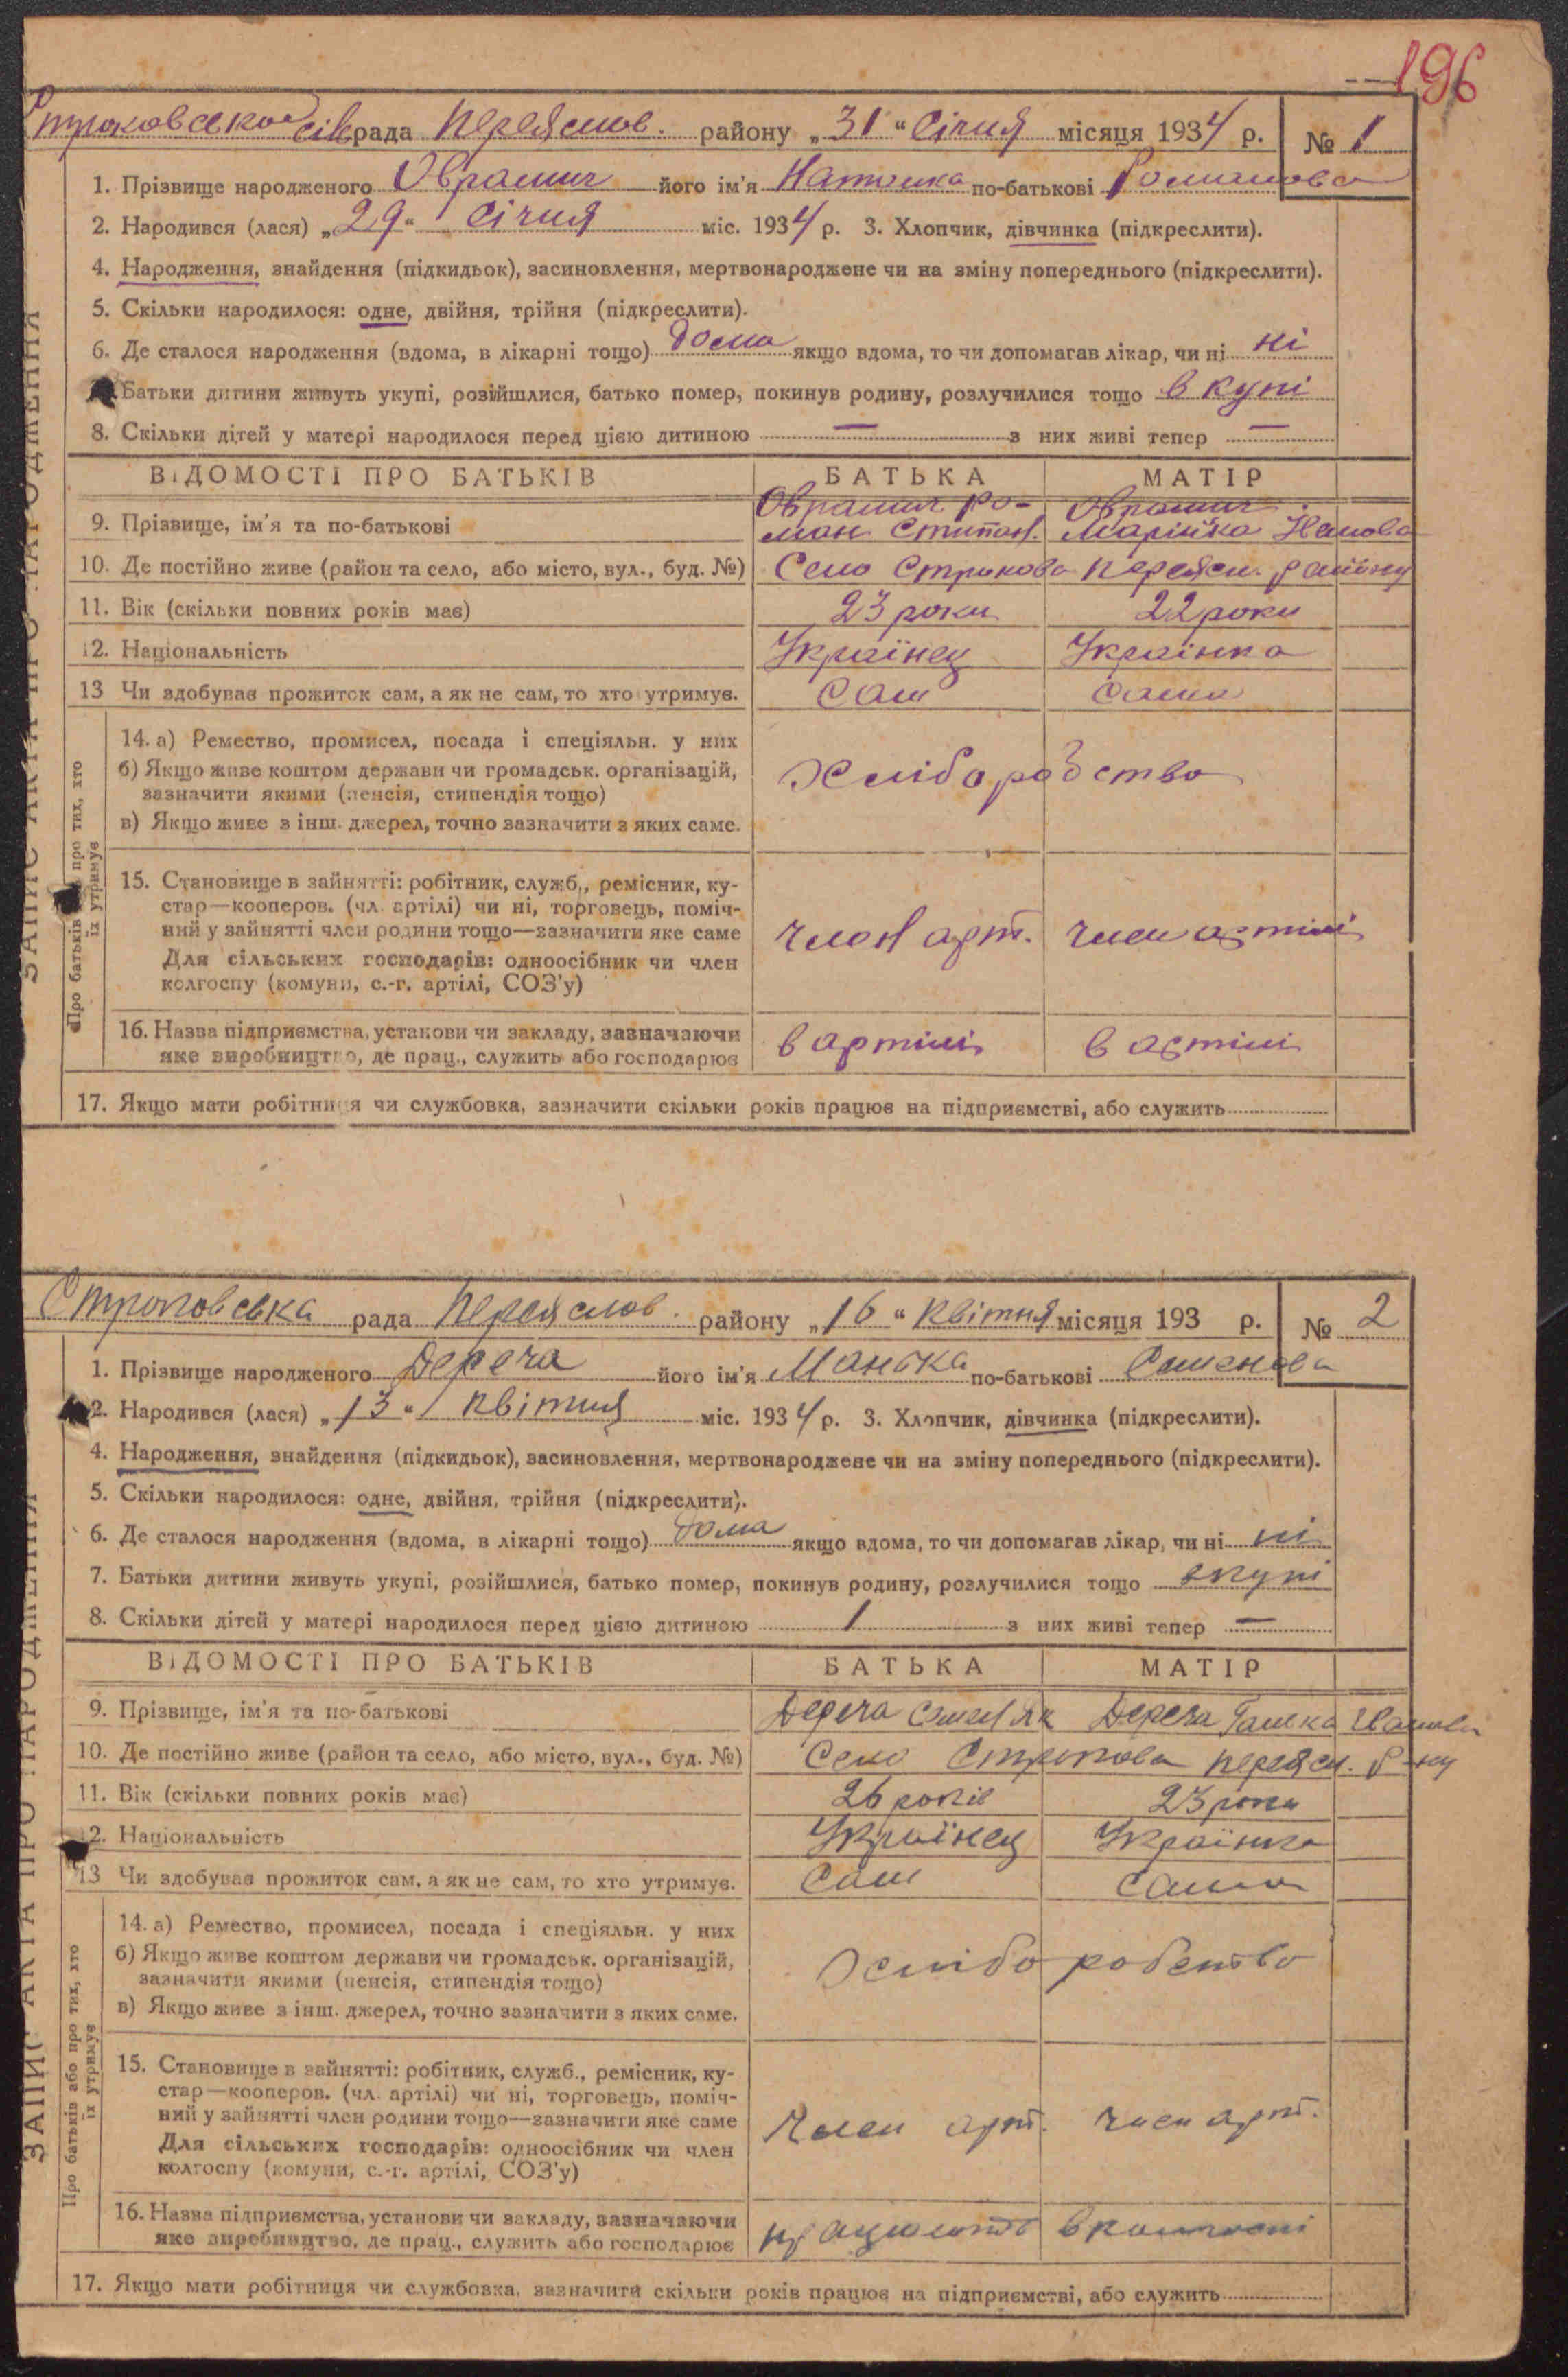 196
Строковської сільрада Переяслов. району „31“ Січня місяця 1934 р. № 1
1. Прізвище народженого Оврашич його ім'я Наталка по-батькові Романова
2. Народився (лася) „29“ Січня міс. 1934 р. 3. Хлопчик, дівчинка (підкреслити).
4. Народження, знайдення (підкидьок), засиновлення, мертвонароджене чи на зміну попереднього (підкреслити).
5. Скільки народилося: одне, двійня, трійня (підкреслити).
6. Де сталося народження (вдома, в лікарні тощо) дома якщо вдома, то чи допомагав лікар, чи ні ні
Батьки дитини живуть укупі, розійшлися, батько помер, покинув родину, розлучилися тощо в купі
8. Скільки дітей у матері народилося перед цією дитиною — з них живі тепер —
ВІДОМОСТІ ПРО БАТЬКІВ БАТЬКА МАТІР
9. Прізвище, ім'я та по-батькові Оврашич Ро- Оврашич
ман Степан. Марійка Іванова
10. Де постійно живе (район та село, або місто, вул., буд. №) Село Строкова Переясл. району
11. Вік (скільки повних років має) 23 роки 22 роки
12. Національність Українец Українка
13 Чи здобував прожиток сам, а як не сам, то хто утримує. Сам Сама
14. а) Ремество, промисел, посада і спеціяльн. у них
б) Якщо живе коштом держави чи громадськ. організацій,
зазначити якими (пенсія, стипендія тощо) Хліборобство
в) Якщо живе з інш. джерел, точно зазначити з яких саме.
15. Становище в зайнятті: робітник, служб., ремісник, ку-
стар—кооперов. (чл. артілі) чи ні, торговець, поміч-
ний у зайнятті член родини тощо—зазначити яке саме член арт. член артілі
Для сільських господарів: одноосібник чи член
колгоспу (комуни, с.-г. артілі, СОЗ'у)
16. Назва підприємства, установи чи закладу, зазначаючи в артілі в артілі
яке виробництво, де прац., служить або господарює
17. Якщо мати робітниця чи службовка, зазначити скільки років працює на підприємстві, або служить
ЗАПИС АКТА ПРО НАРОДЖЕННЯ
Про батьків про тих, хто
їх утримує
Строковська рада Переяслов. району „16“ Квітня місяця 193 р. № 2
1. Прізвище народженого Дереча його ім'я Манька по-батькові Семенова
2. Народився (лася) „13“ Квітня міс. 1934 р. 3. Хлопчик, дівчинка (підкреслити).
4. Народження, знайдення (підкидьок), засиновлення, мертвонароджене чи на зміну попереднього (підкреслити).
5. Скільки народилося: одне, двійня, трійня (підкреслити).
6. Де сталося народження (вдома, в лікарні тощо) дома якщо вдома, то чи допомагав лікар, чи ні ні
7. Батьки дитини живуть укупі, розійшлися, батько помер, покинув родину, розлучилися тощо вкупі
8. Скільки дітей у матері народилося перед цією дитиною 1 з них живі тепер —
ВІДОМОСТІ ПРО БАТЬКІВ БАТЬКА МАТІР
9. Прізвище, ім'я та по-батькові Дереча Семен Як Дереча Галька Іванова
10. Де постійно живе (район та село, або місто, вул., буд. №) Село Строкова Переясл. р-ну
11. Вік (скільки повних років має) 26 років 23 роки
12. Національність Українец Українка
13 Чи здобував прожиток сам, а як не сам, то хто утримує. Сам Сама
14. а) Ремество, промисел, посада і спеціяльн. у них
б) Якщо живе коштом держави чи громадськ. організацій,
зазначити якими (пенсія, стипендія тощо) Хліборобство
в) Якщо живе з інш. джерел, точно зазначити з яких саме.
15. Становище в зайнятті: робітник, служб., ремісник, ку-
стар—кооперов. (чл. артілі) чи ні, торговець, поміч-
ний у зайнятті член родини тощо—зазначити яке саме член арт. член арт.
Для сільських господарів: одноосібник чи член
колгоспу (комуни, с.-г. артілі, СОЗ'у)
16. Назва підприємства, установи чи закладу, зазначаючи
яке виробництво, де прац., служить або господарює працюють в колгоспі
17. Якщо мати робітниця чи службовка, зазначити скільки років працює на підприємстві, або служить
ЗАПИС АКТА ПРО НАРОДЖЕННЯ
Про батьків або про тих, хто
їх утримує